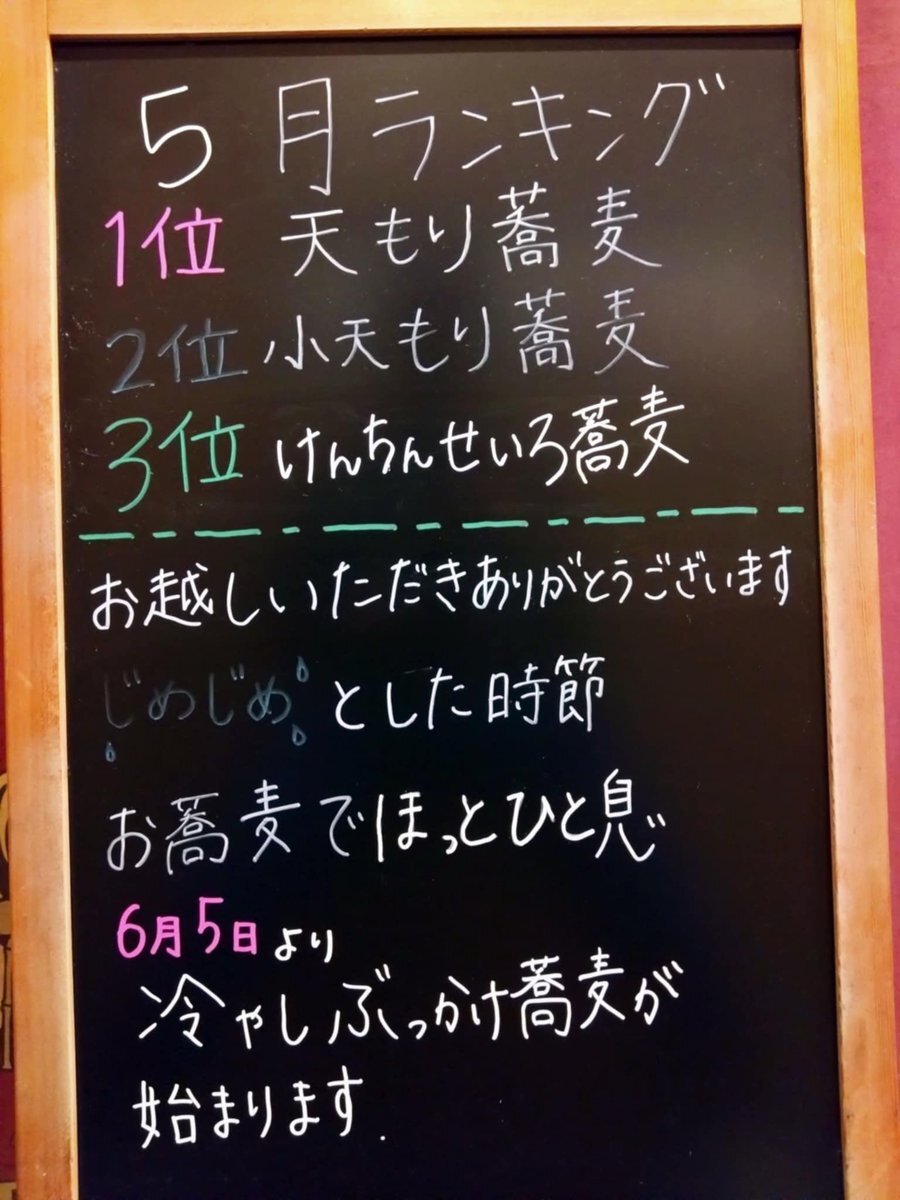 5月ランキング
1位 天もり蕎麦
2位 小天もり蕎麦
3位 けんちんせいろ蕎麦
お越しいただきありがとうございます
じめじめとした時節
お蕎麦でほっとひと息
6月5日より
冷やしぶっかけ蕎麦が
始まります.